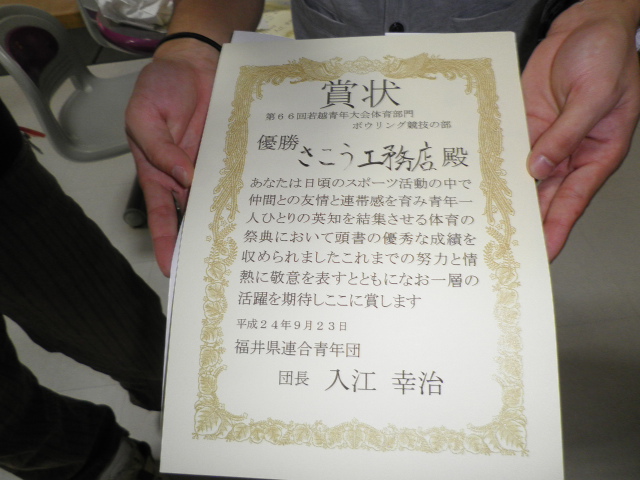 賞状
第66回若越青年大会体育部門
ボウリング競技の部
優勝 さこう工務店 殿
あなたは日頃のスポーツ活動の中で
仲間との友情と連帯感を育み青年一
人ひとりの英知を結集させる体育の
祭典において頭書の優秀な成績を
収められましたこれまでの努力と情
熱に敬意を表すとともになお一層の
活躍を期待しここに賞します
平成24年9月23日
福井県連合青年団
団長 入江 幸治